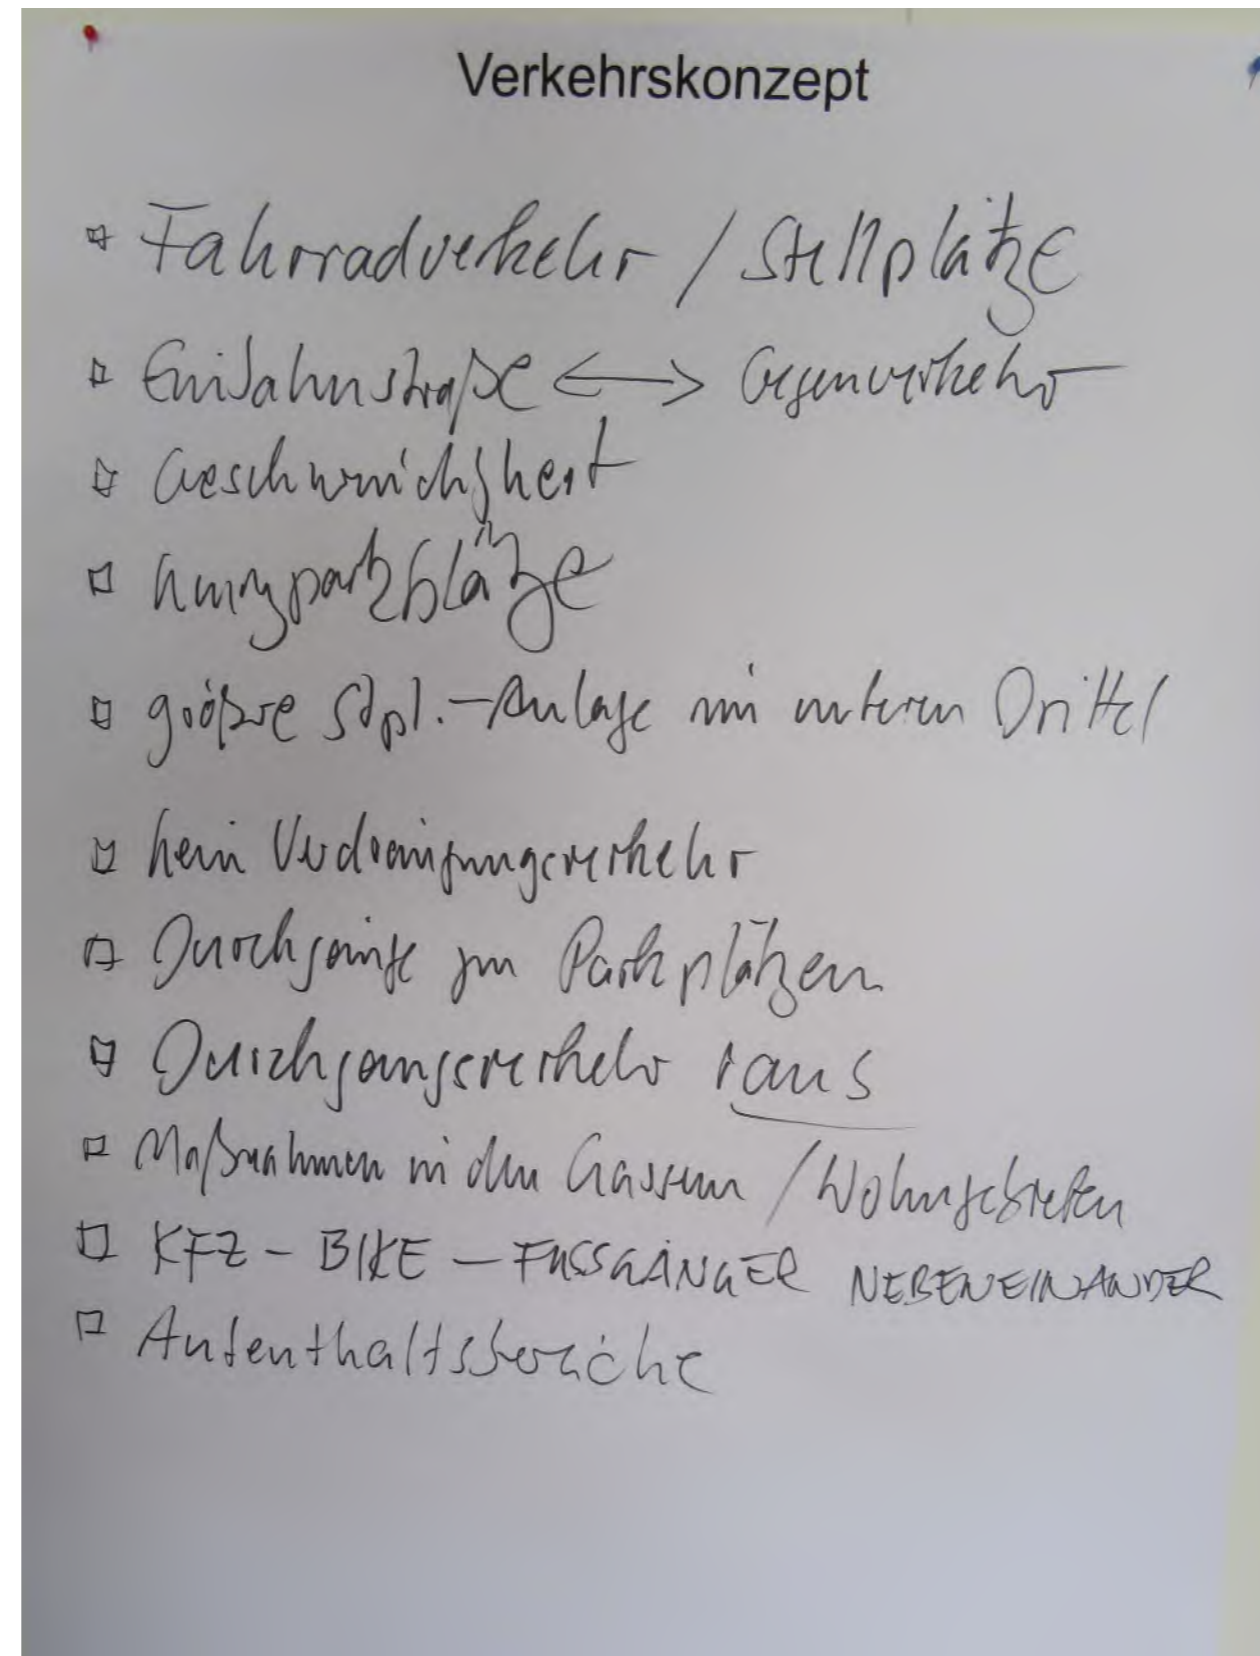 Verkehrskonzept
Fahrradverkehr / Stellplätze
Einbahnstraße <-> Gegenverkehr
Geschwindigkeit
Kurzparkplätze
größere Stpl.-Anlage im unteren Drittel
kein Verdrängungsverkehr
Durchgänge zu Parkplätzen
Durchgangsverkehr raus
Maßnahmen in den Gassen / Wohngebieten
KFZ - BIKE - FUSSGÄNGER NEBENEINANDER
Aufenthaltsbereiche